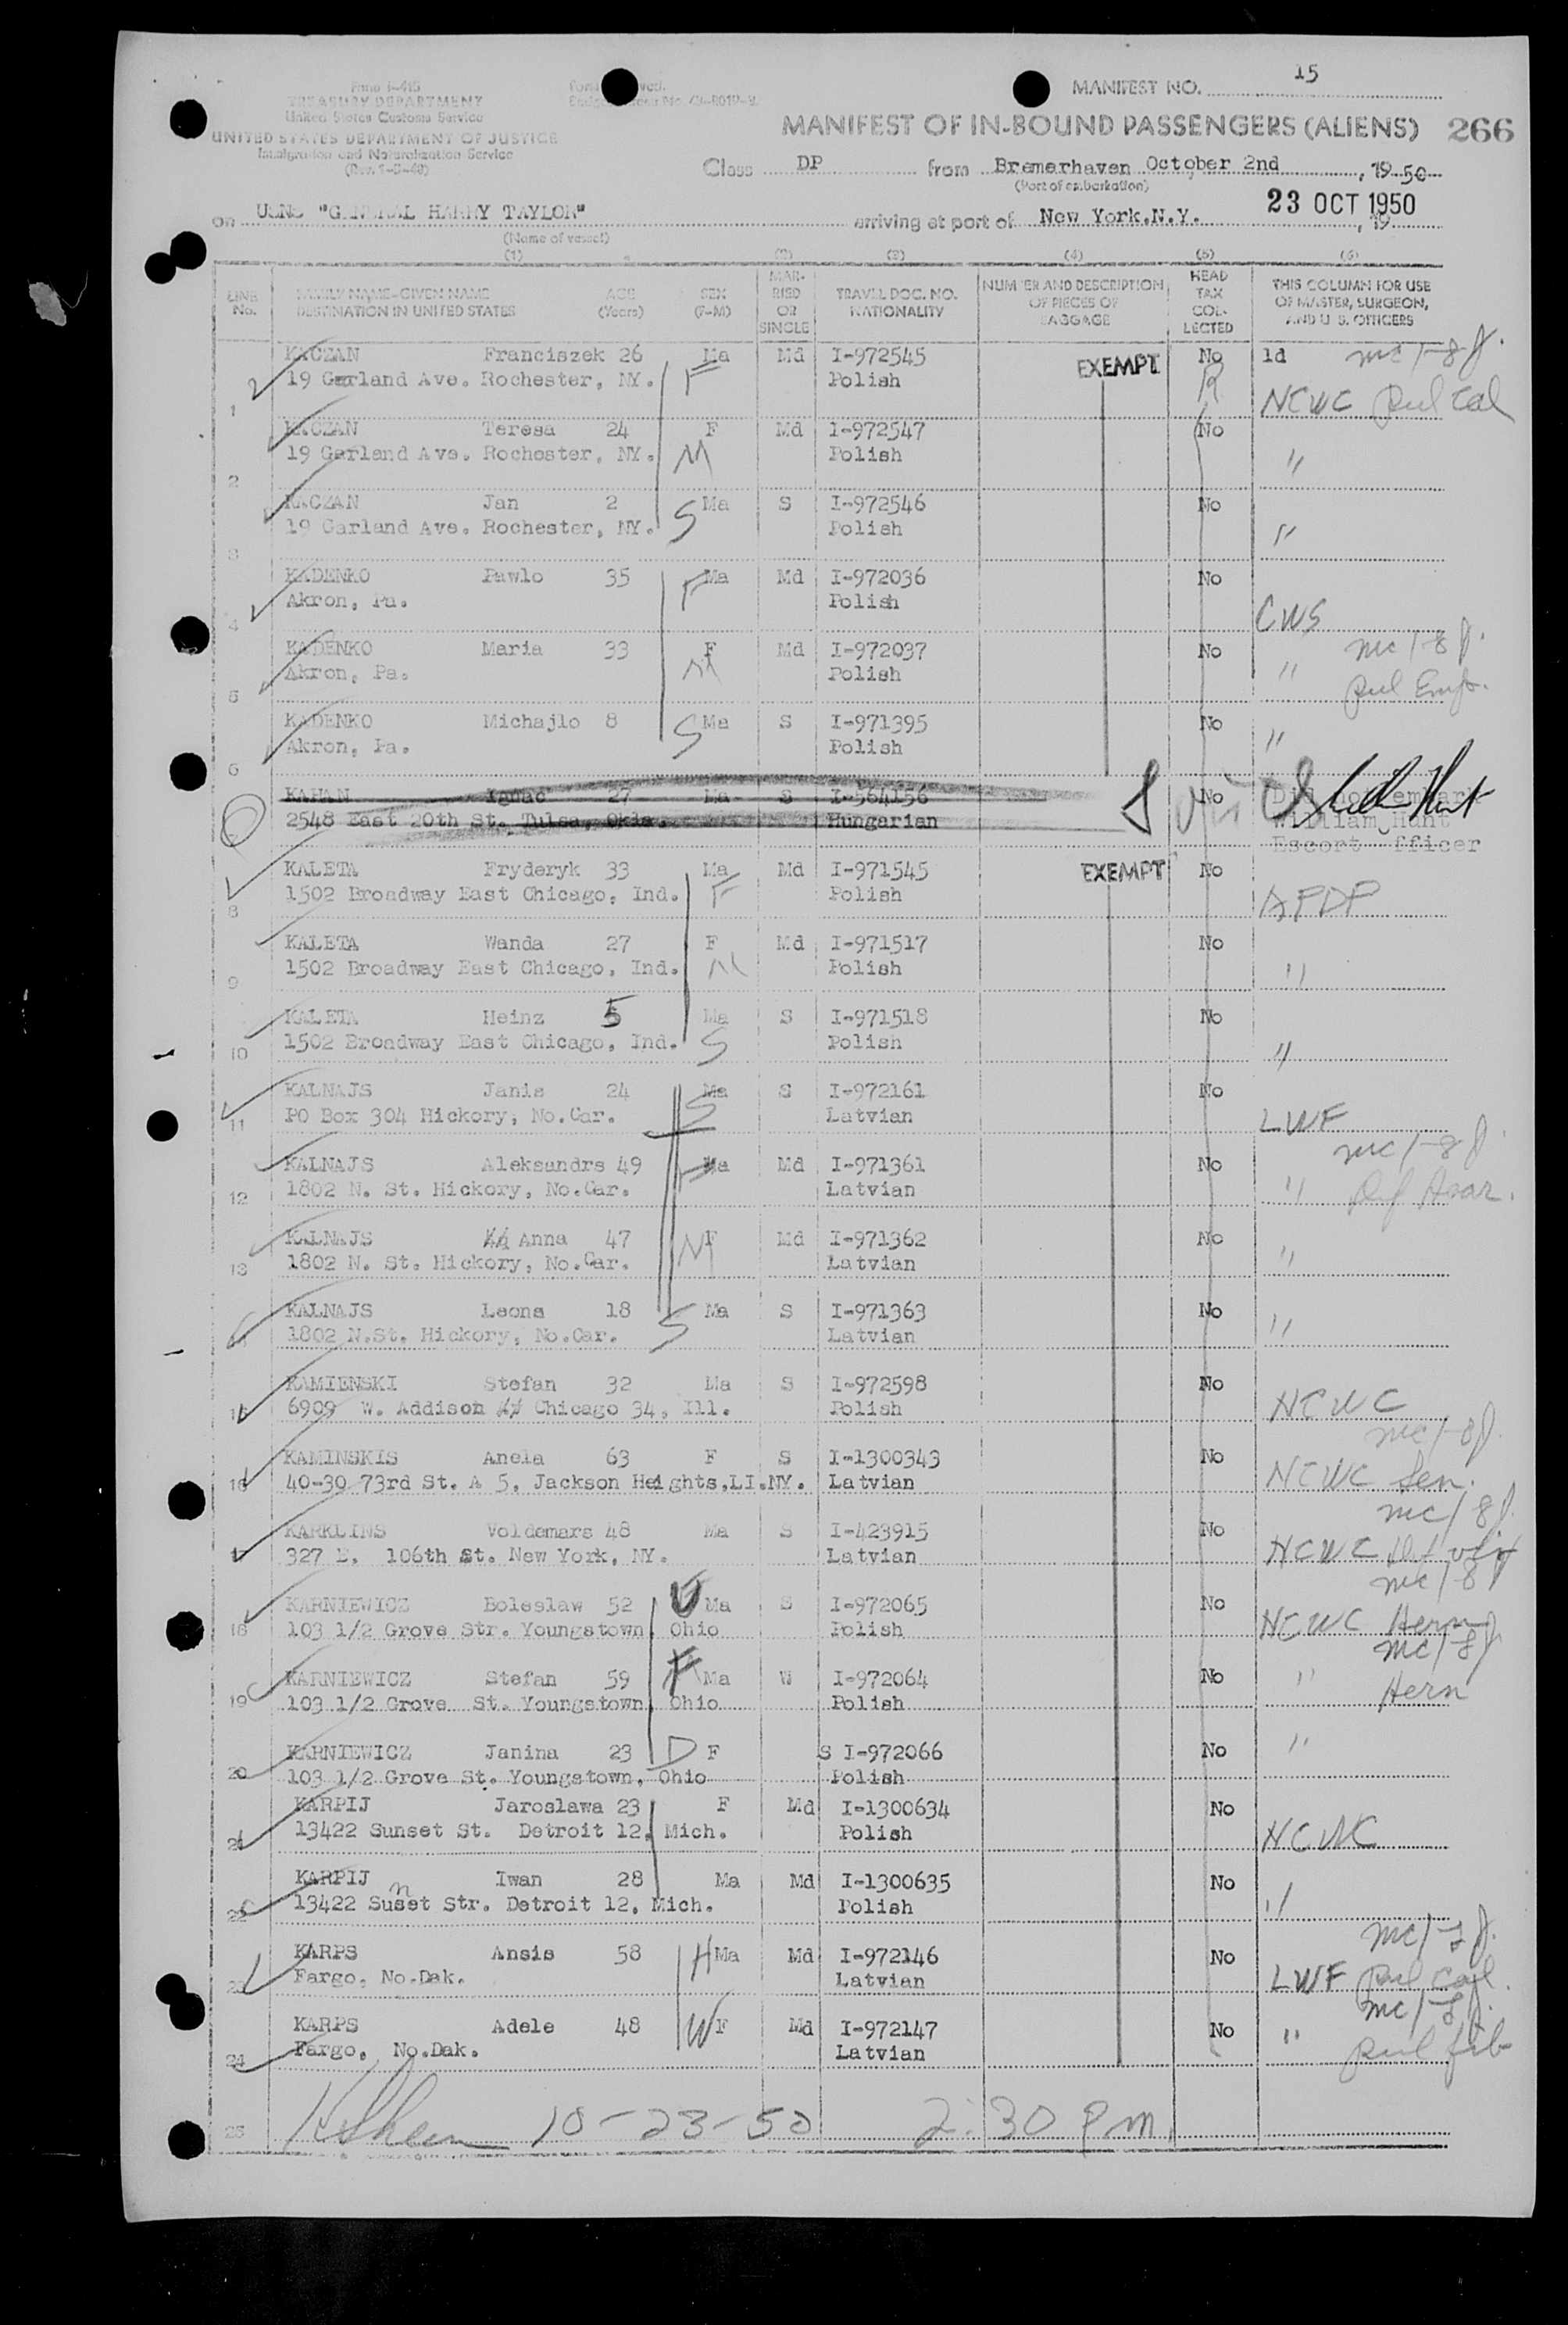 Form I-415
TREASURY DEPARTMENT
United States Customs Service
UNITED STATES DEPARTMENT OF JUSTICE
Immigration and Naturalization Service
MANIFEST NO. 15
MANIFEST OF IN-BOUND PASSENGERS (ALIENS) 266
Class DP from Bremerhaven October 2nd, 1950
(Port of embarkation)
on USNS "GENERAL HARRY TAYLOR" arriving at port of New York,N.Y. 23 OCT 1950, 19
(Name of vessel)
(1) (2) (3) (4) (5) (6)
LINE No. FAMILY NAME-GIVEN NAME DESTINATION IN UNITED STATES AGE (Years) SEX (F-M) MARRIED OR SINGLE TRAVEL DOC. NO. NATIONALITY NUMBER AND DESCRIPTION OF PIECES OF BAGGAGE HEAD TAX COLLECTED THIS COLUMN FOR USE OF MASTER, SURGEON, AND U. S. OFFICERS
KACZAN Franciszek 26 Ma Md I-972545 EXEMPT No 1d
1 19 Garland Ave. Rochester, NY. F Polish NCWC
KACZAN Teresa 24 F Md I-972547 No
2 19 Garland Ave. Rochester, NY. M Polish "
KACZAN Jan 2 Ma S I-972546 No
3 19 Garland Ave. Rochester, NY. S Polish "
KADENKO Pawlo 35 Ma Md I-972036 No
4 Akron, Pa. F Polish CWS
KADENKO Maria 33 F Md I-972037 No
5 Akron, Pa. M Polish "
KADENKO Michajlo 8 Ma S I-971395 No
6 Akron, Pa. S Polish "
KAHAN Ignac 27 Ma S I-564156 No Did not embark
2548 East 20th St. Tulsa, Okla. Hungarian William Hunt
Escort Officer
KALETA Fryderyk 33 Ma Md I-971545 EXEMPT No
8 1502 Broadway East Chicago, Ind. F Polish AFDP
KALETA Wanda 27 F Md I-971517 No
9 1502 Broadway East Chicago, Ind. M Polish "
KALETA Heinz 5 Ma S I-971518 No
10 1502 Broadway East Chicago, Ind. S Polish "
KALNAJS Janis 24 Ma S I-972161 No
11 PO Box 304 Hickory, No.Car. S Latvian LWF
KALNAJS Aleksandrs 49 Ma Md I-971361 No
12 1802 N. St. Hickory, No.Car. F Latvian "
KALNAJS Anna 47 F Md I-971362 No
13 1802 N. St. Hickory, No.Car. M Latvian "
KALNAJS Leons 18 Ma S I-971363 No
1802 N.St. Hickory, No.Car. S Latvian "
KAMIENSKI Stefan 32 Ma S I-972598 No
6909 W. Addison Chicago 34, Ill. Polish NCWC
KAMINSKIS Anela 63 F S I-1300343 No
16 40-30 73rd St. A 5, Jackson Heights,LI.NY. Latvian NCWC Sen.
KARKLINS Voldemars 48 Ma S I-423915 No
17 327 E. 106th St. New York, NY. Latvian NCWC
KARNIEWICZ Boleslaw 52 U Ma S I-972065 No
18 103 1/2 Grove Str. Youngstown Ohio Polish NCWC Hern
KARNIEWICZ Stefan 59 F Ma W I-972064 No
19 103 1/2 Grove St. Youngstown Ohio Polish " Hern
KARNIEWICZ Janina 23 D F S I-972066 No "
20 103 1/2 Grove St. Youngstown, Ohio Polish
KARPIJ Jaroslawa 23 F Md I-1300634 No
21 13422 Sunset St. Detroit 12, Mich. Polish NCWC
KARPIJ Iwan 28 Ma Md I-1300635 No
22 13422 Sunset Str. Detroit 12, Mich. Polish "
KARPS Ansis 58 H Ma Md I-972146 No
23 Fargo, No.Dak. Latvian LWF
KARPS Adele 48 W F Md I-972147 No "
24 Fargo, No.Dak. Latvian
25 10-23-50 2:30 Pm